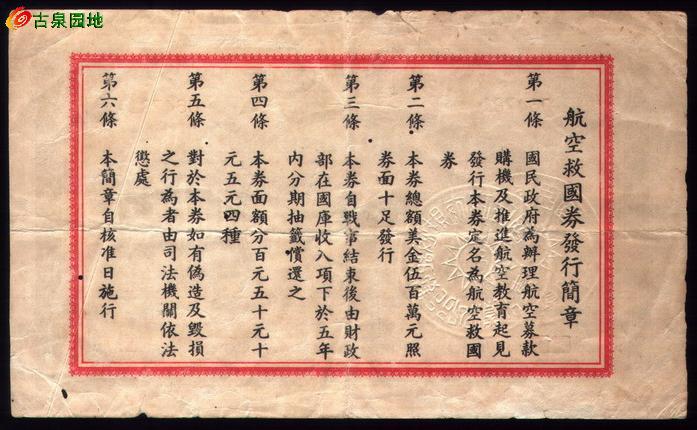 古泉园地
航空救國券發行簡章
第一條
國民政府為辦理航空募款
購機及推進航空教育起見
發行本券定名為航空救國
券
第二條
本券總額美金伍百萬元照
券面十足發行
第三條
本券自戰事結束後由財政
部在國庫收入項下於五年
內分期抽籤償還之
第四條
本券面額分百元五十元十
元五元四種
第五條
對於本券如有偽造及毀損
之行為者由司法機關依法
懲處
第六條
本簡章自核准日施行